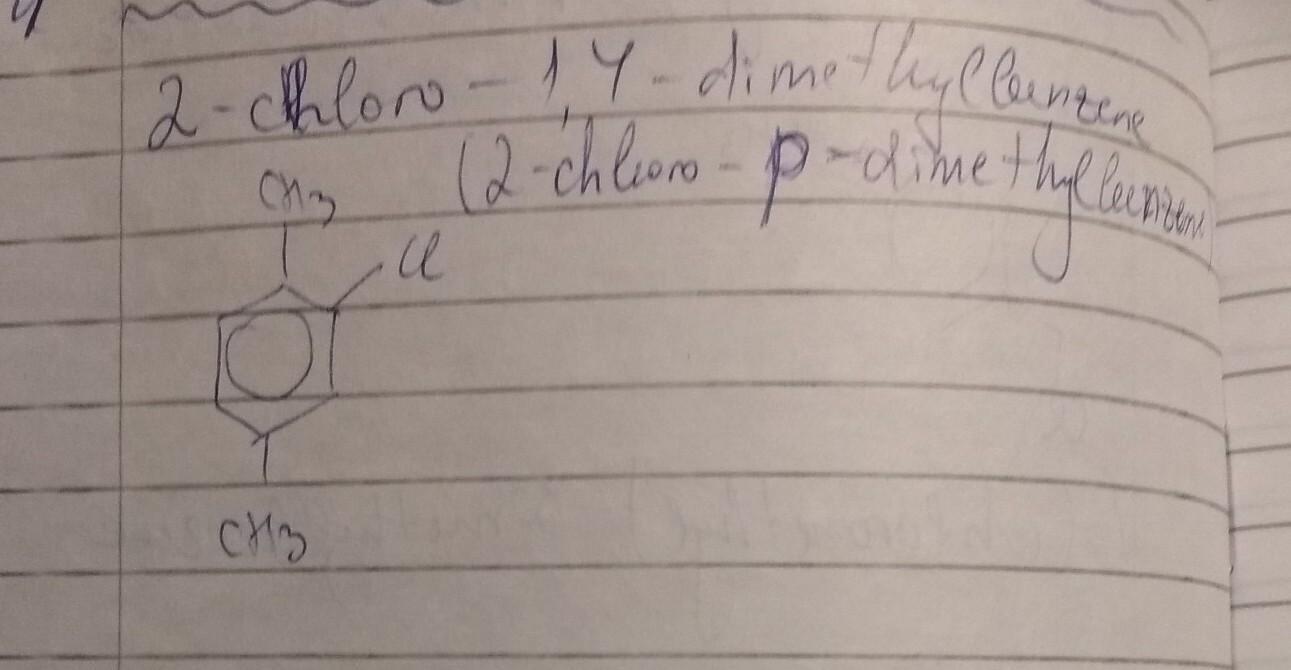 2-chloro-1,4-dimethylbenzene
(2-chloro-p-dimethylbenzene
CH3
Cl
CH3